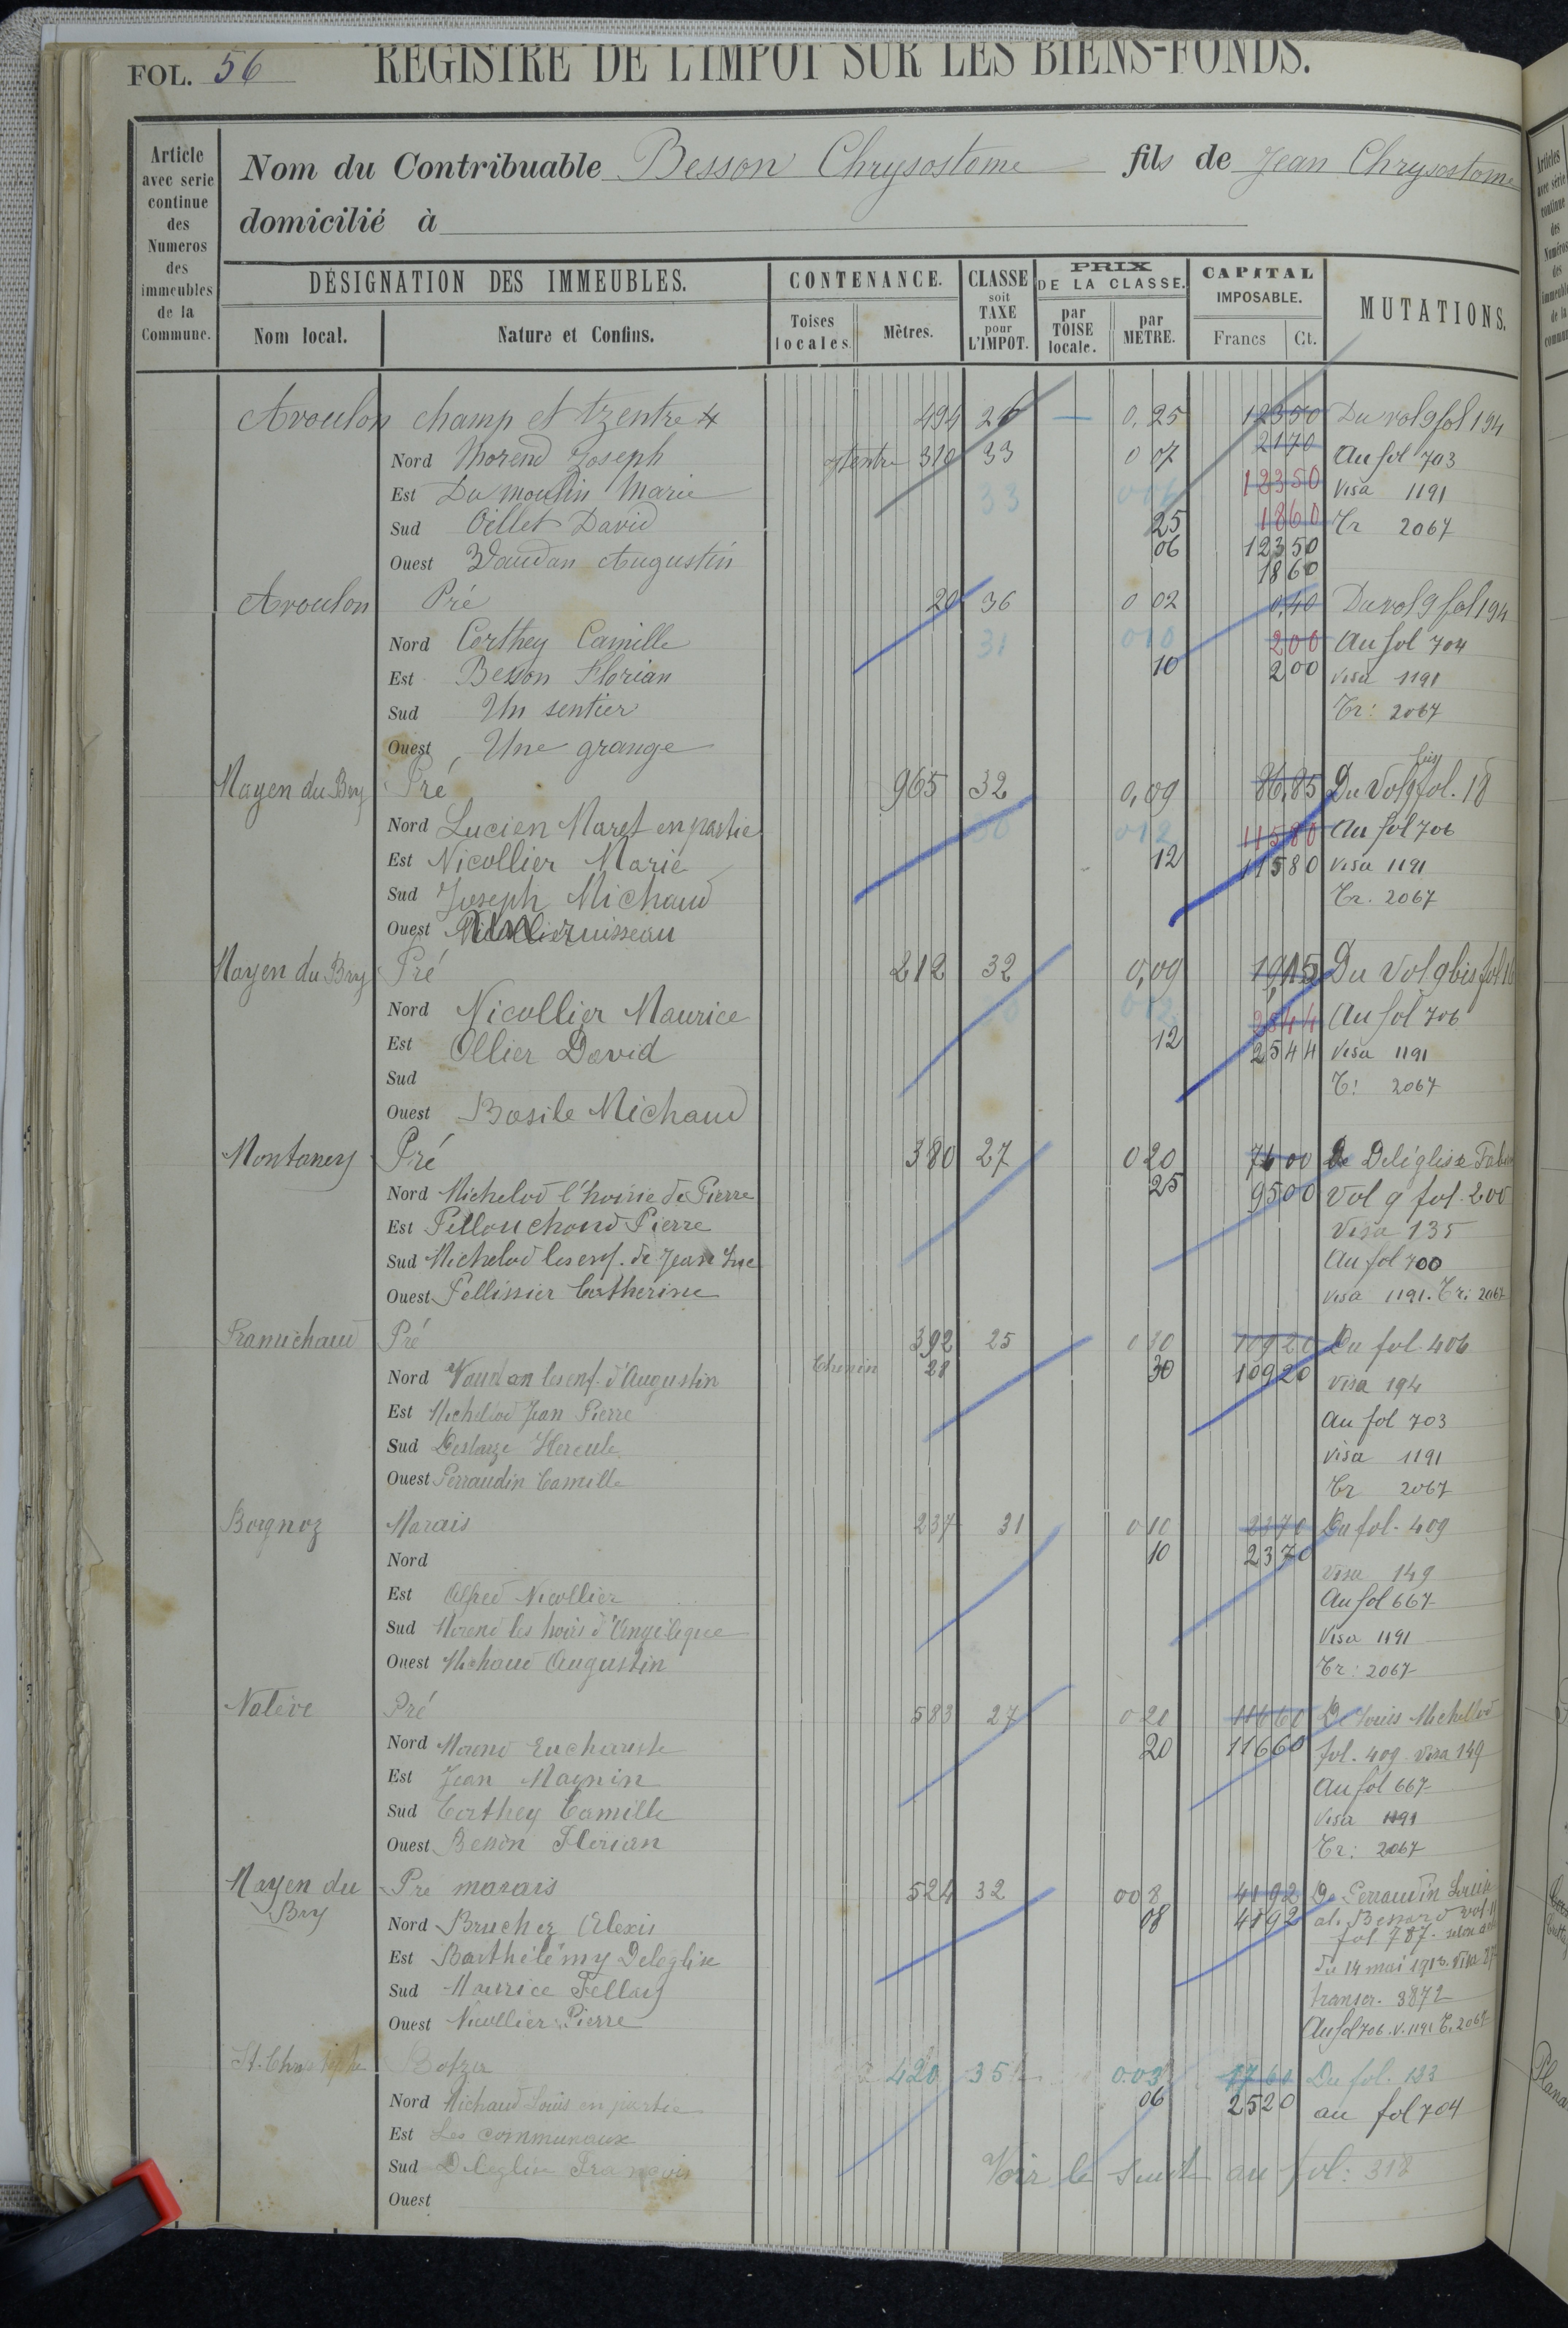 FOL. 56 REGISTRE DE L'IMPOT SUR LES BIENS-FONDS.
Article avec serie continue des Numeros des immeubles de la Commune.
Nom du Contribuable Besson Chrysostome fils de Jean Chrysostome
domicilié à
DÉSIGNATION DES IMMEUBLES. CONTENANCE. CLASSE soit TAXE pour L'IMPOT. PRIX DE LA CLASSE. CAPITAL IMPOSABLE. MUTATIONS.
Nom local. Nature et Confins. Toises locales. Mètres. par TOISE locale. par METRE. Francs Ct.
Avoulon champ et tzentre 494 26 0,25 12350 Du vol 9 fol 194
Nord Morend Joseph 310 33 0 07 2170 Au fol 703
Est Dumoulin Marie 33 006 12350 Visa 1191
Sud Oillet David 25 1860 Tr 2067
Ouest Vaudan Augustin 06 12350
1860
Avoulon Pré 20 36 0 02 0,40 Du vol 9 fol 194
Nord Corthey Camille 31 010 200 Au fol 704
Est Besson Florian 10 200 visa 1191
Sud Un sentier Tr: 2067
Ouest Une grange
Mayen du Bry Pré 965 32 0,09 86,85 Du Vol 9 bis fol. 18
Nord Lucien Maret en partie 30 012 11580 Au fol 706
Est Nicollier Marie 12 11580 visa 1191
Sud Joseph Michaud Tr. 2067
Ouest ruisseau
Mayen du Bry Pré 212 32 0,09 Du Vol 9 bis fol
Nord Nicollier Maurice 012 2544 Au fol 706
Est Ollier David 12 2544 visa 1191
Sud T: 2067
Ouest Basile Michaud
Montaney Pré 380 27 0 20 7600 De Deléglise
Nord Michelod l'hoirie de Pierre 25 9500 Vol 9 fol. 200
Est Pellouchoud Pierre Visa 135
Sud Michelod les enf. de Jean Luc Au fol 700
Ouest Pellissier Catherine visa 1191. Tr: 2067
Pramichaud Pré 392 25 0 30 10920 Du fol. 406
Nord Vaudan les enf. d'Augustin Chemin 28 30 10920 visa 194
Est Michellod Jean Pierre Au fol 703
Sud Deslarze Hercule visa 1191
Ouest Perraudin Camille Tr 2067
Borgnoz Marais 237 31 0 10 2370 Du fol. 409
Nord 10 2370 visa 149
Est Alfred Nicollier Au fol 667
Sud Morend les hoirs d'Angélique Visa 1191
Ouest Michaud Augustin Tr: 2067
Natève Pré 583 27 0 20 11660 De Louis Michellod
Nord Morend Euchariste 20 11660 fol. 409 visa 149
Est Jean Magnin Au fol 667
Sud Corthey Camille Visa 1191
Ouest Besson Florian Tr: 2067
Mayen du Bry Pré marais 524 32 008 4192 De Perraudin Louis
Nord Bruchez Alexis 08 4192 al. Besson vol
fol 787. selon acte
Est Barthélémy Deléglise du 14 mai Visa
Sud Maurice Fellay transcr. 3872
Ouest Nicollier Pierre Au fol 706. V. 1191 T. 2067
St. Christophe Botza 420 35 0.03 Du fol. 133
Nord Michaud Louis en partie 06 2520 au fol 704
Est Les communaux
Sud Deléglise François Voir la suite au fol: 318
Ouest